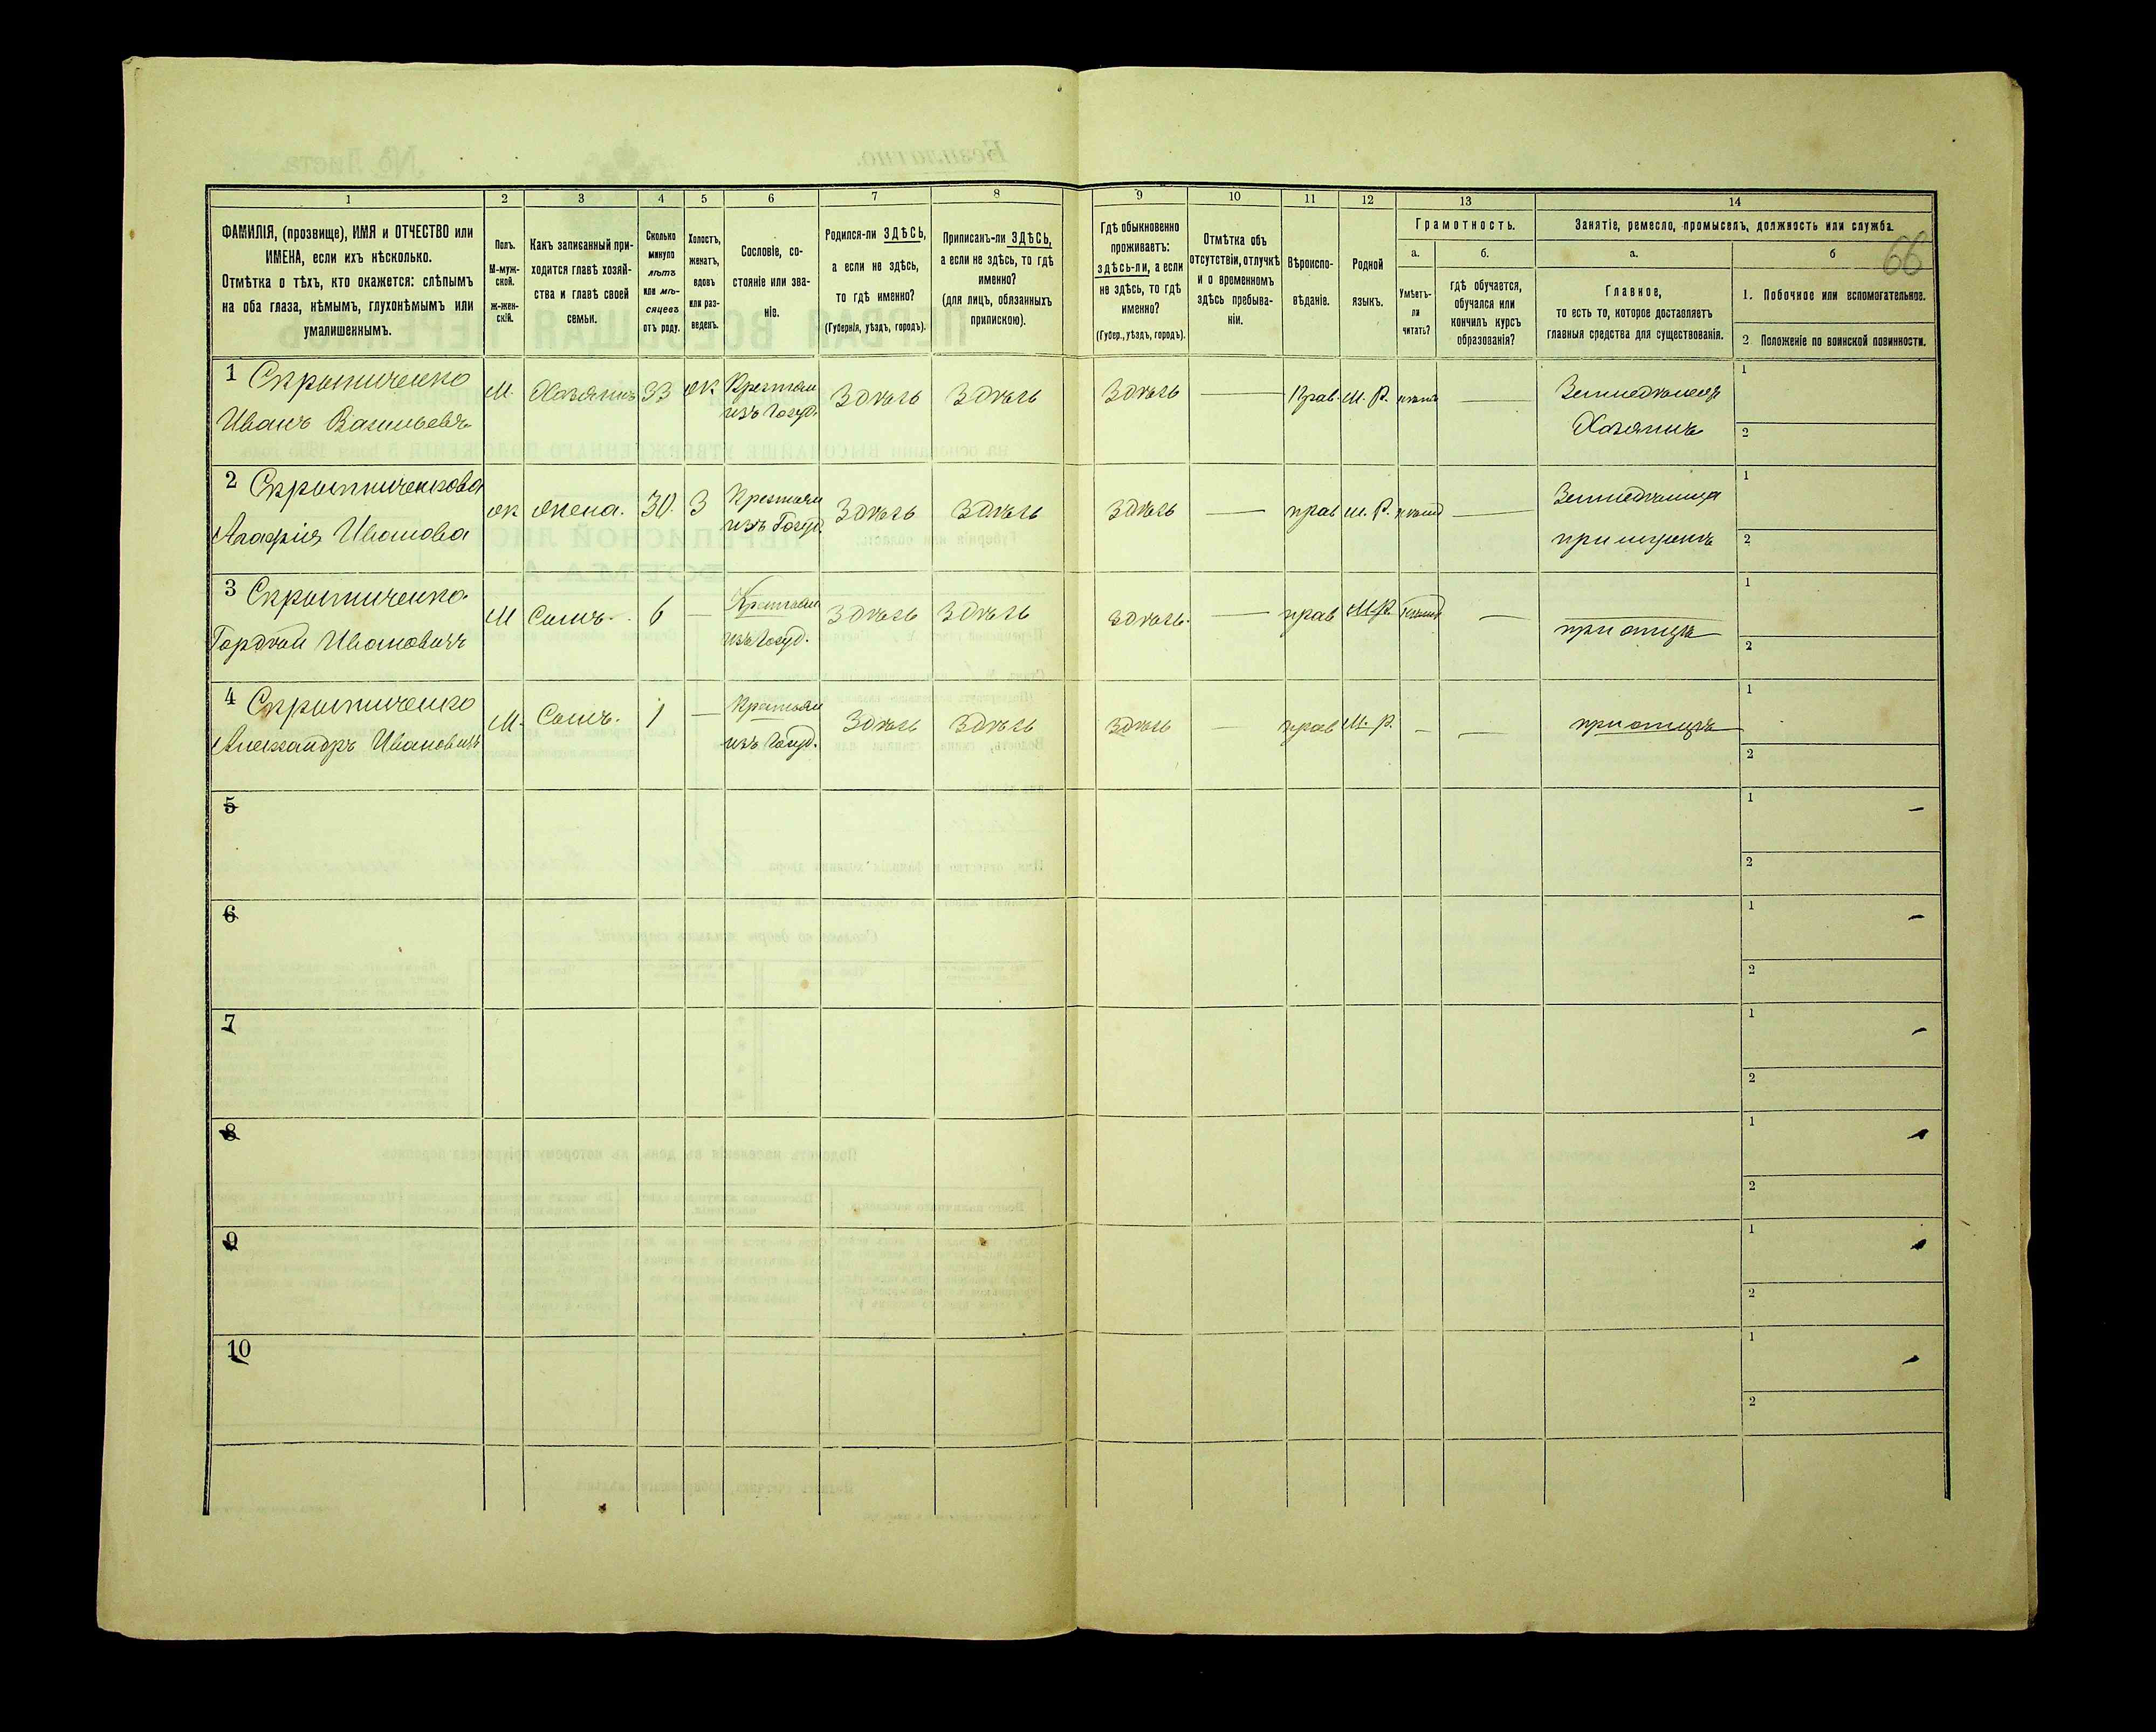 66
1 2 3 4 5 6 7 8 9 10 11 12 13 14
ФАМИЛІЯ, (прозвище), ИМЯ и ОТЧЕСТВО или
ИМЕНА, если ихъ нѣсколько.
Отмѣтка о тѣхъ, кто окажется: слѣпымъ
на оба глаза, нѣмымъ, глухонѣмымъ или
умалишеннымъ.
Полъ.
М-муж-
ской.
ж-жен-
скій.
Какъ записанный при-
ходится главѣ хозяй-
ства и главѣ своей
семьи.
Сколько
минуло
лѣтъ
или мѣ-
сяцевъ
отъ роду.
Холостъ,
женатъ,
вдовъ
или раз-
веденъ.
Сословіе, со-
стояніе или зва-
ніе.
Родился-ли ЗДѢСЬ,
а если не здѣсь,
то гдѣ именно?
(Губернія, уѣздъ, городъ).
Приписанъ-ли ЗДѢСЬ,
а если не здѣсь, то гдѣ
именно?
(для лицъ, обязанныхъ
припискою).
Гдѣ обыкновенно
проживаетъ:
здѣсь-ли, а если
не здѣсь, то гдѣ
именно?
(Губер., уѣздъ, городъ).
Отмѣтка объ
отсутствіи, отлучкѣ
и о временномъ
здѣсь пребыва-
ніи.
Вѣроиспо-
вѣданіе.
Родной
языкъ.
Грамотность.
а.
Умѣетъ-
ли
читать?
б.
гдѣ обучается,
обучался или
кончилъ курсъ
образованія?
Занятіе, ремесло, промыселъ, должность или служба.
а.
Главное,
то есть то, которое доставляетъ
главныя средства для существованія.
б
1. Побочное или вспомогательное.
2 Положеніе по воинской повинности.
1 Скрыпниченко М. Хозяинъ 33 ж Крестьян Здѣсь Здѣсь Здѣсь — Прав. М. Р. нѣтъ — Земледѣлецъ 1
Иванъ Васильевъ изъ Госуд. Хозяинъ 2
2 Скрыпниченкова ж жена. 30. З Крестьян Здѣсь Здѣсь Здѣсь — прав М. Р. — Земледѣлица 1
Агафія Иванова изъ Госуд. при мужѣ 2
3 Скрыпниченко М Сынъ. 6 — Крестьян Здѣсь Здѣсь Здѣсь. — прав М. Р. — при отцѣ 1
Гордѣй Ивановичъ изъ Госуд. 2
4 Скрыпниченко М. Сынъ. 1 — Крестьян Здѣсь Здѣсь Здѣсь — прав М. Р. — — при отцѣ 1
Александръ Ивановичъ изъ Госуд. 2
5 1
2
6 1
2
7 1
2
8 1
2
9 1
2
10 1
2